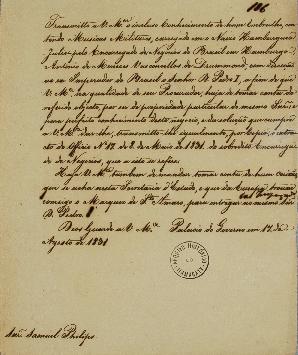 106
Transmitto a V. M.ce o incluso Conhecimento de hum Embrulho, con-
tendo Musicas Militares, carregado em o Navio Hamburguez
Julio pelo Encarregado de Negocios do Brasil em Hamburgo
Antonio de Menezes Vasconcellos de Drummond, com direcção
ao Imperador do Brasil o Senhor D. Pedro I, a fim de que
V. M.ce, na qualidade de seu Procurador, haja de tomar conta do
referido objecto, por ser de propriedade particular do mesmo Senhor
para perfeito conhecimento deste negocio, e da solução que cumpre
a V. M.ce dar-lhe, transmitto-lhe igualmente, por Copia, o ex-
trato do Officio N.º 17, de 2 de Maio de 1831, do sobredito Encarrega-
do de Negocios, que a isto se refere.
Haja V. M.ce tambem de mandar tomar conta de hum
que se acha nesta Secretaria d'Estado, e que da Europa trouxe
comigo o Marquez de S.to Amaro, para entregar ao mesmo Sn.r
D. Pedro.
Deos Guarde a V. M.ce Palacio do Governo em 17 de
Agosto de 1831
Snr. Samuel Philips
ARQUIVO HISTORICO
ITAMARATY